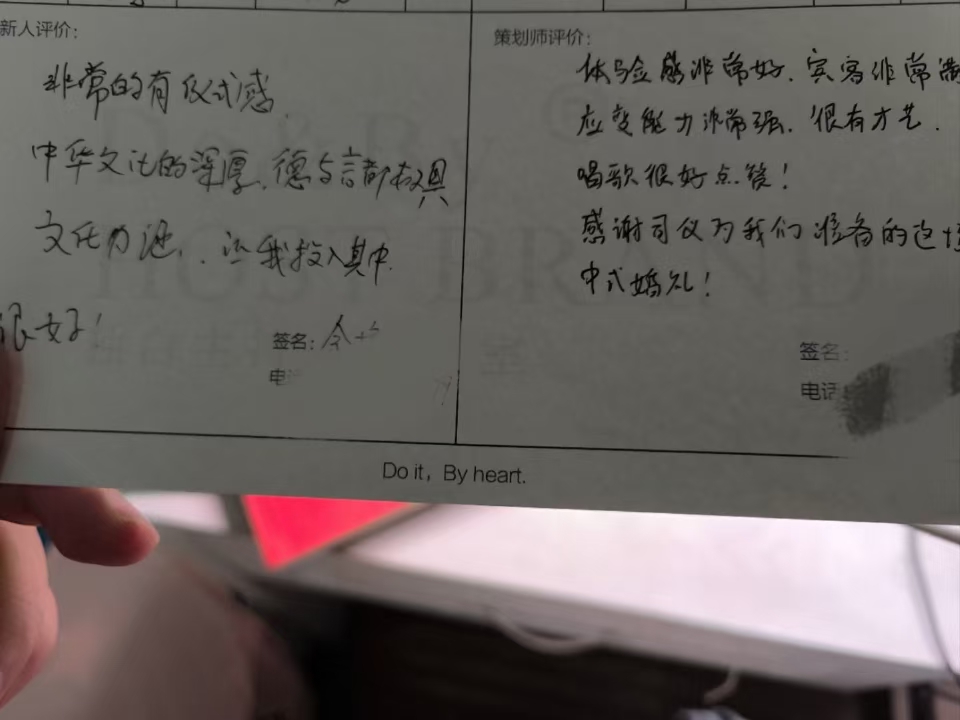 新人评价:
非常的有仪式感.
中华文化的深厚.德与言都极具
文化力
让我投入其中.
很好!
签名:
电
策划师评价:
体验感非常好.宾客非常满
应变能力非常强.很有才艺.
唱歌很好点赞!
感谢司仪为我们准备的这
中式婚礼!
签名:
电话
Do it, By heart.
HOST BRAND